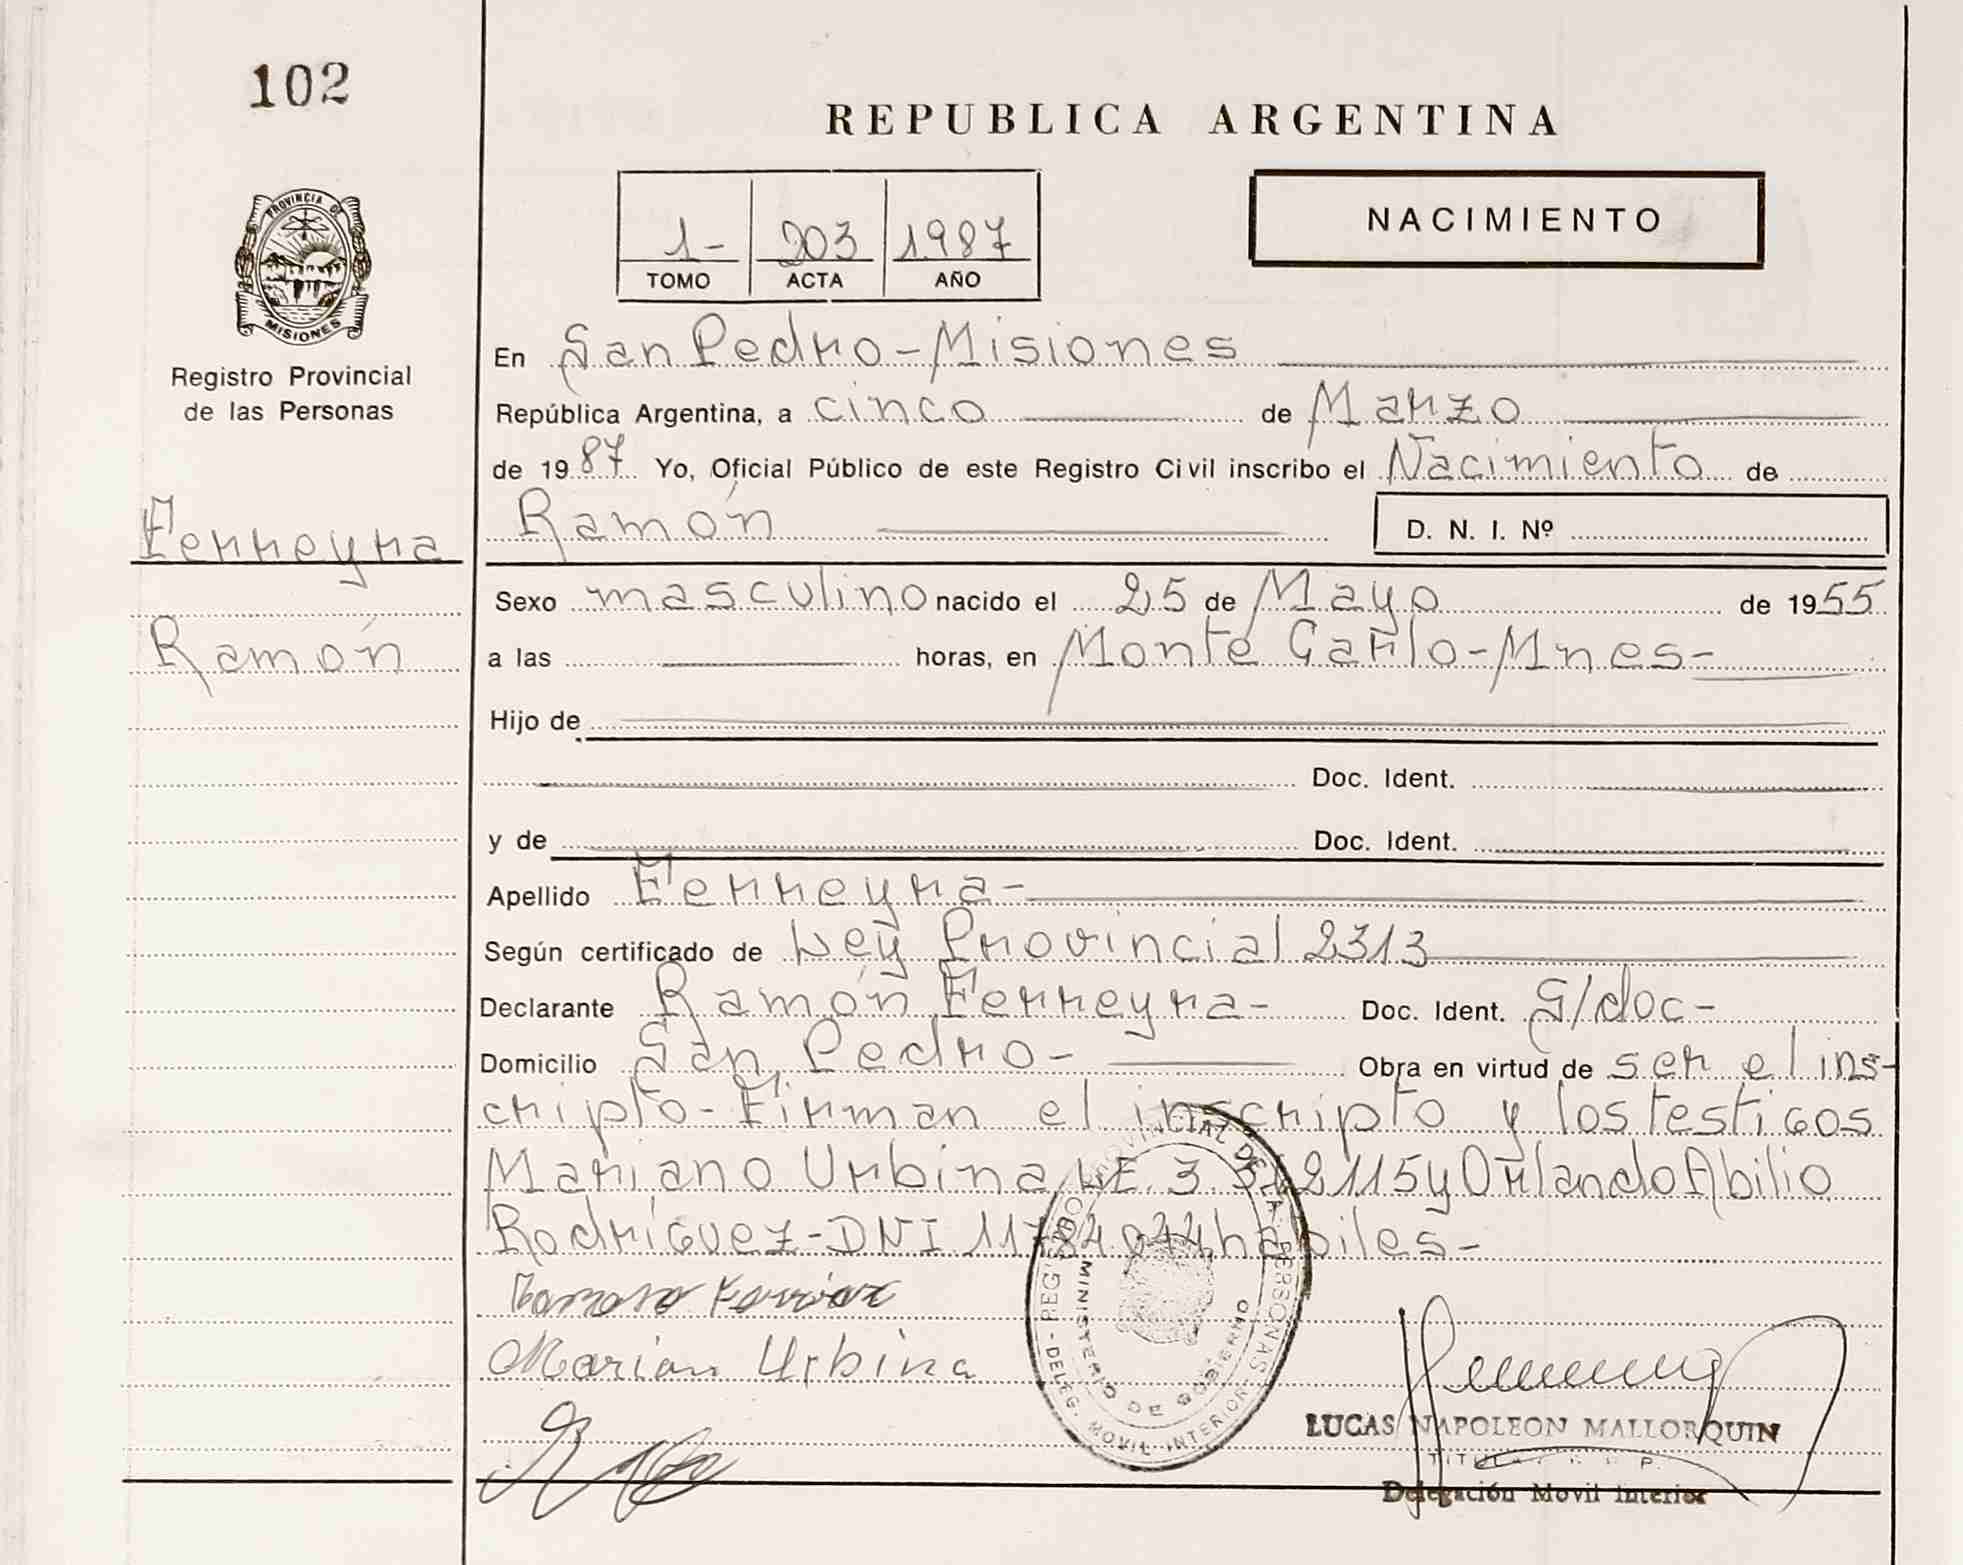 102
REPUBLICA ARGENTINA
PROVINCIA DE
MISIONES
1- 203 1987
TOMO ACTA AÑO
NACIMIENTO
Registro Provincial
de las Personas
En San Pedro-Misiones
República Argentina, a cinco de Marzo
de 1987 Yo, Oficial Público de este Registro Civil inscribo el Nacimiento de
Ramón D. N. I. Nº
Ferreyra
Sexo masculino nacido el 25 de Mayo de 1955
Ramón
a las horas, en Monte Carlo-Mnes-
Hijo de
Doc. Ident.
y de Doc. Ident.
Apellido Ferreyra-
Según certificado de Ley Provincial 2313
Declarante Ramón Ferreyra- Doc. Ident. S/doc-
Domicilio San Pedro- Obra en virtud de ser el ins-
cripto-Firman el inscripto y los testigos
Mariano Urbina LE. 3. 2115 y Orlando Abilio
Rodríguez-DNI hábiles-
Marian Urbina
REGISTRO PROVINCIAL DE LAS PERSONAS
MINISTERIO DE GOBIERNO
DELEG. MOVIL INTERIOR
LUCAS NAPOLEON MALLORQUIN
Delegación Movil Interior